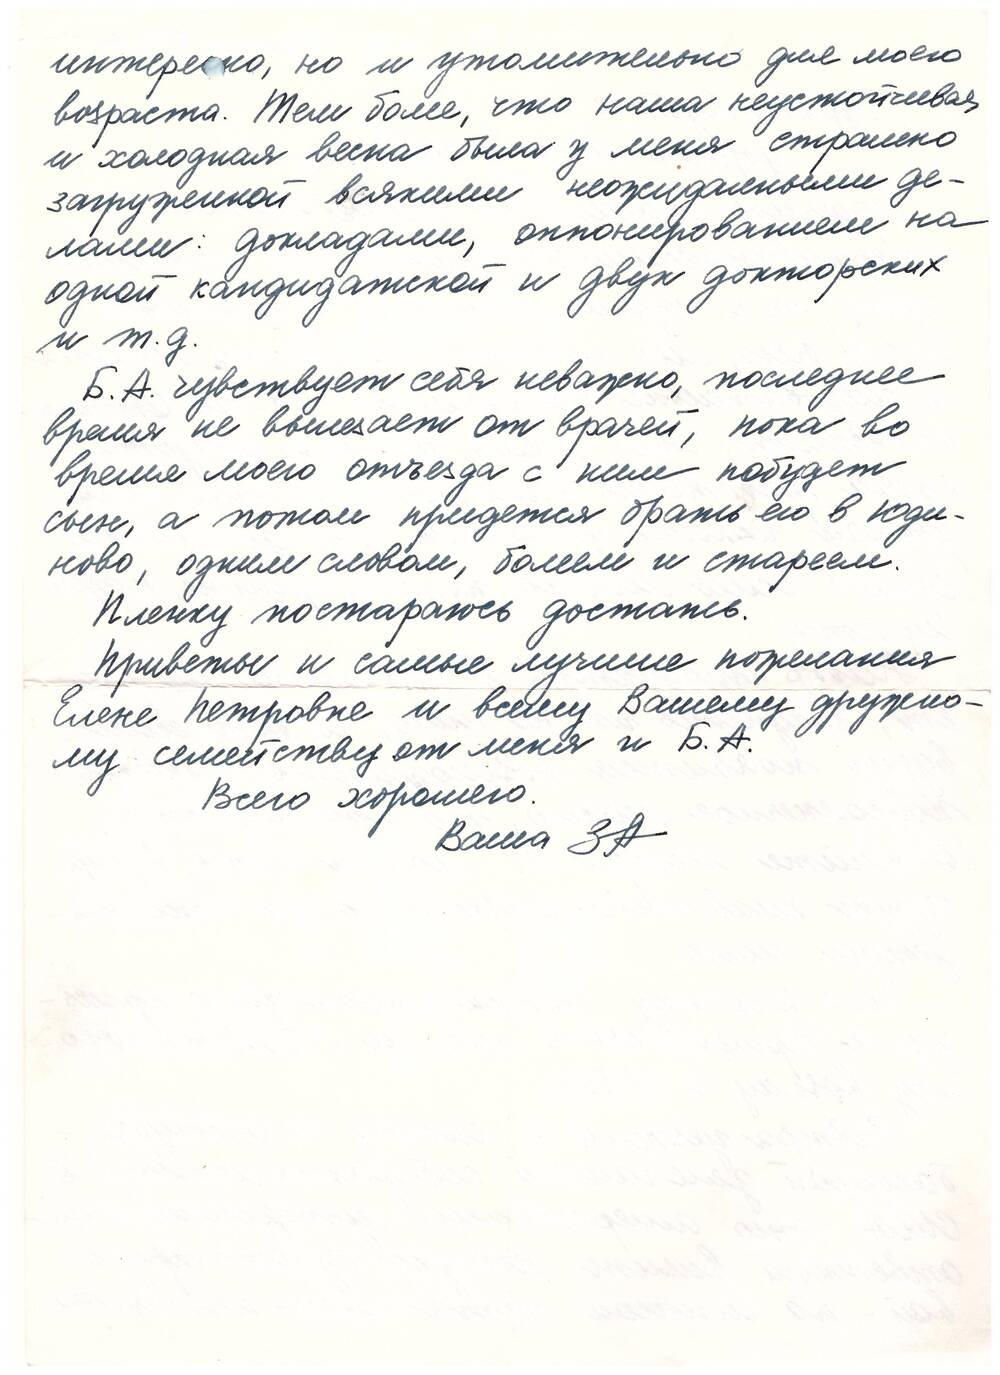 интересно, но и утомительно для моего
возраста. Тем более, что наша неустойчивая
и холодная весна была у меня страшно
загруженной всякими неожиданными де-
лами: докладами, оппонированием на
одной кандидатской и двух докторских
и т.д.
Б.А. чувствует себя неважно, последнее
время не вылезает от врачей, пока во
время моего отъезда с ним побудет
сын, а потом придется брать его в Юди-
ново, одним словом, болеем и стареем.
Пленку постараюсь достать.
Приветы и самые лучшие пожелания
Елене Петровне и всему Вашему дружно-
му семейству от меня и Б.А.
Всего хорошего.
Ваша ЗА